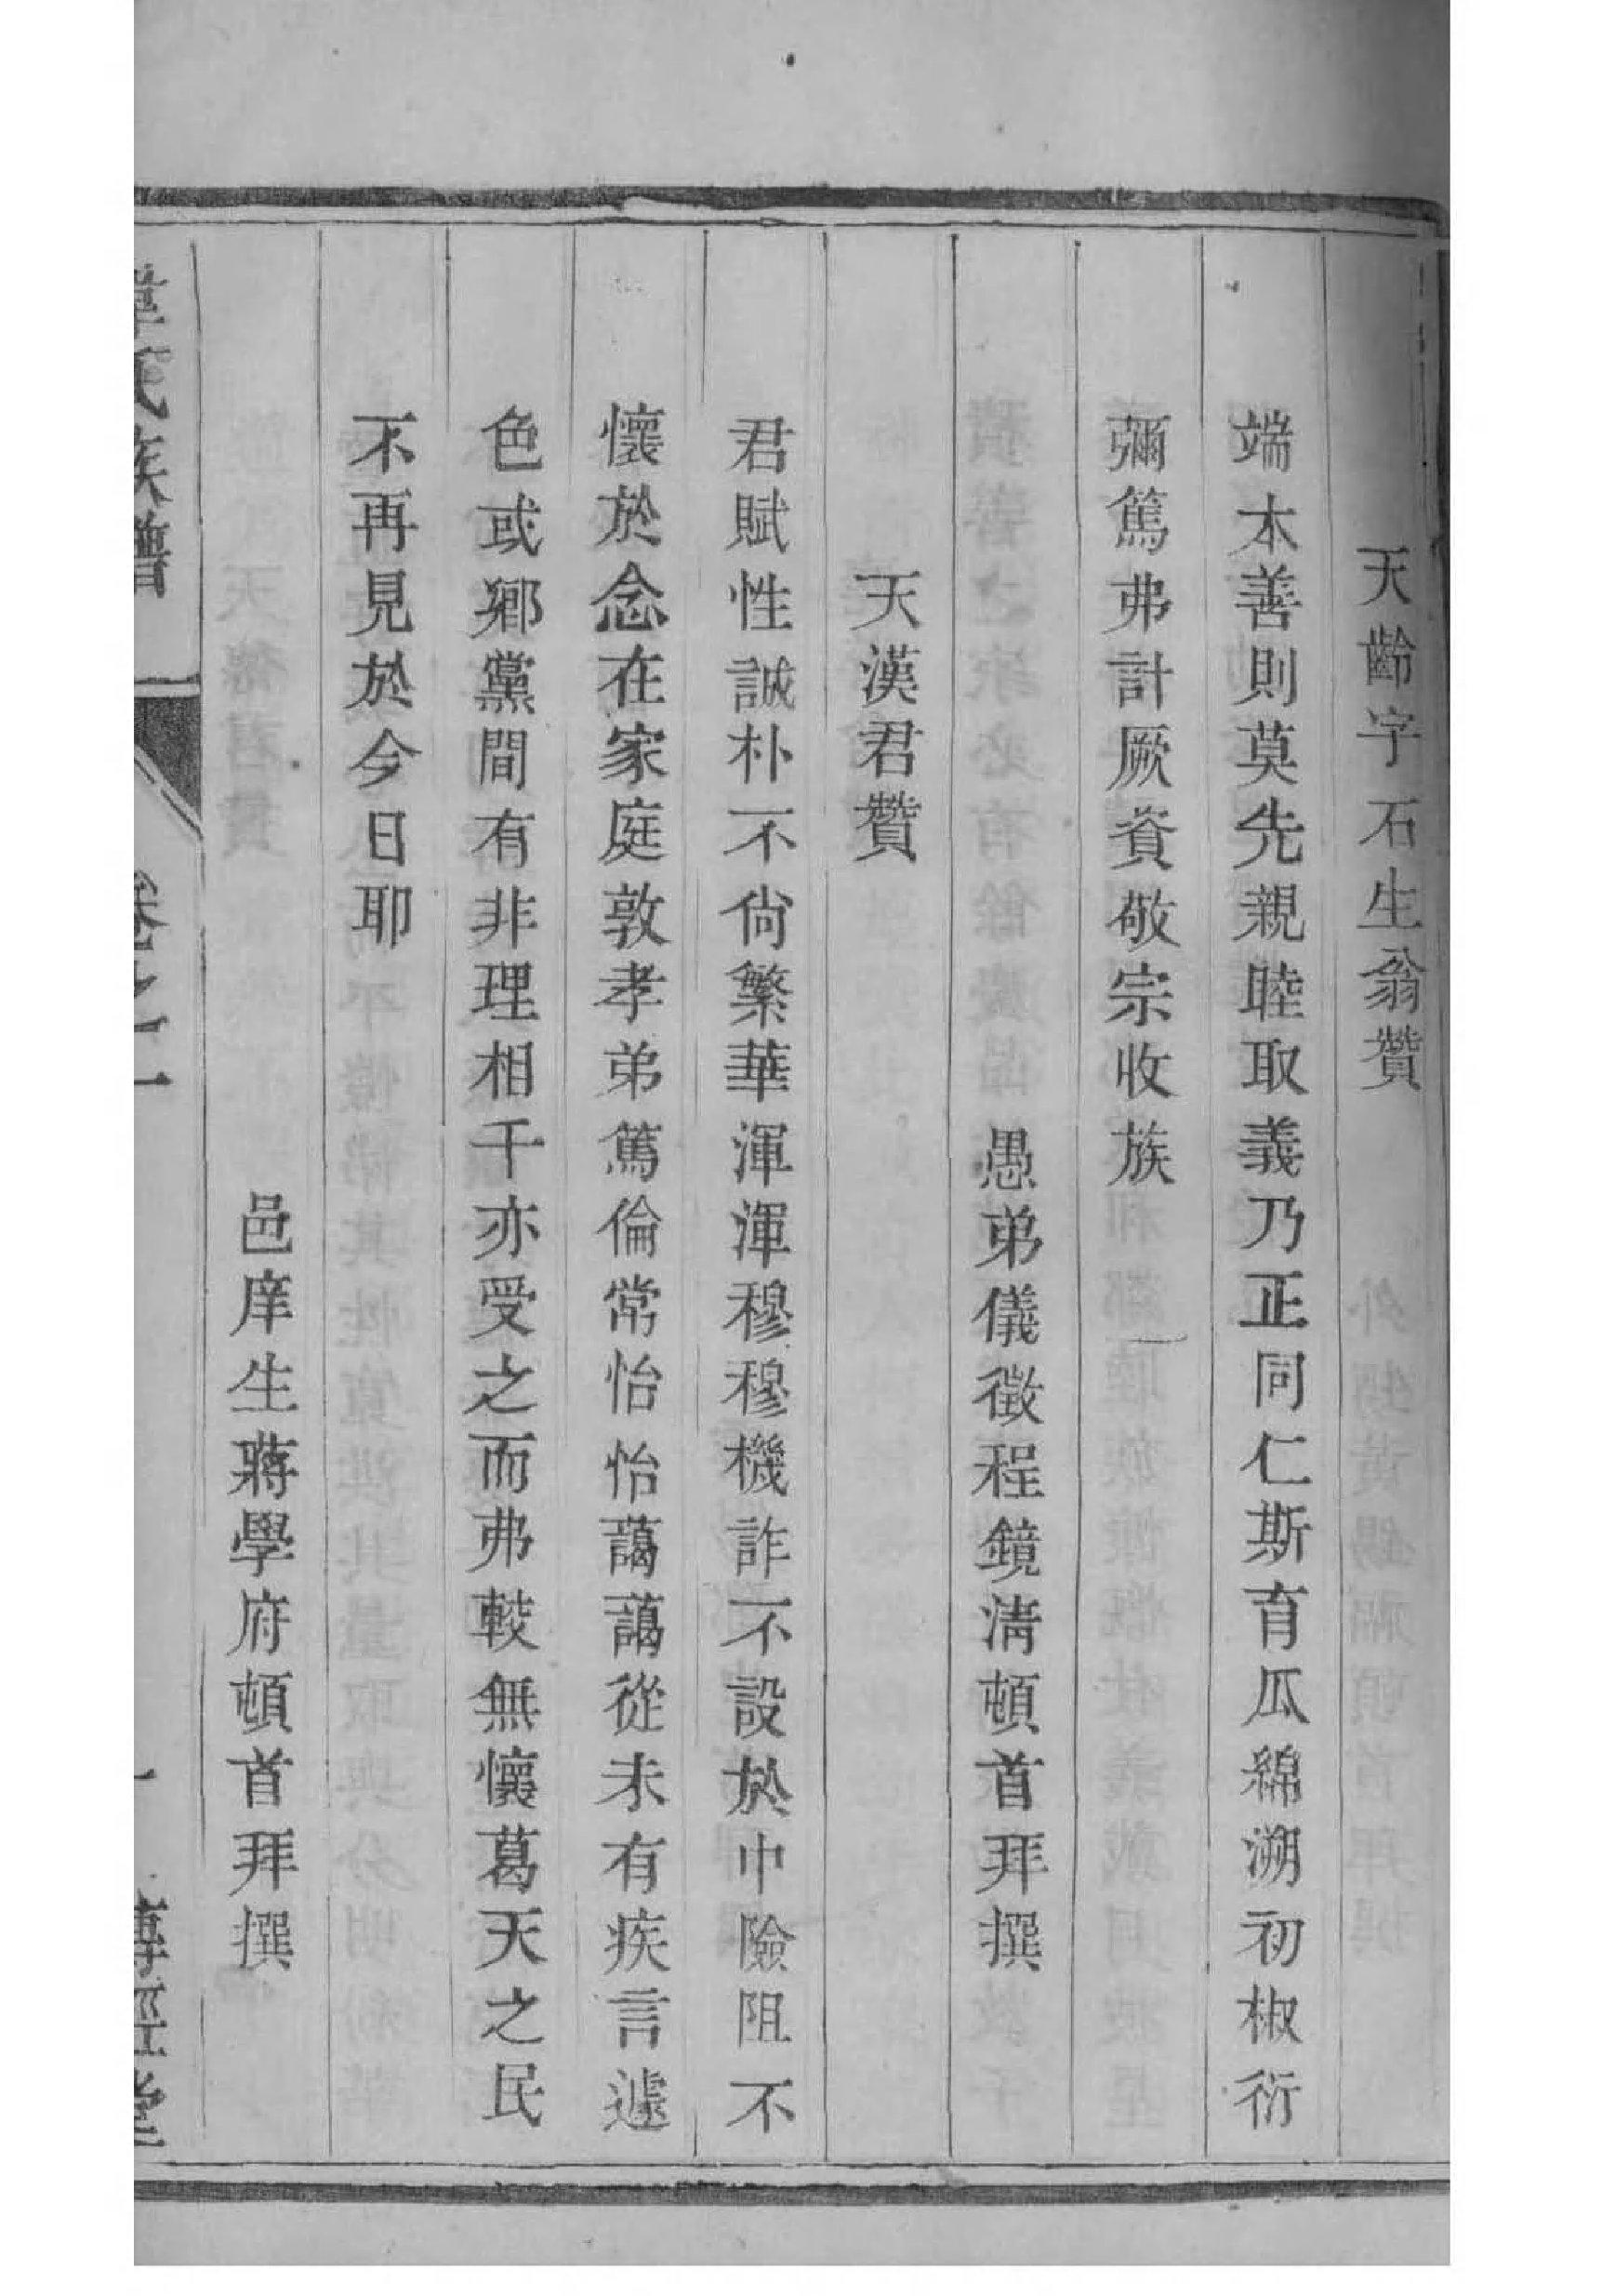 天齡字石生翁贊
端本善則莫先親睦取義乃正同仁斯育瓜綿溯初椒衍
彌篤弗計厥貲敬宗收族
愚弟儀徵程鏡淸頓首拜撰
天漢君贊
君賦性誠朴不尙繁華渾渾穆穆機詐不設於巾險阻不
懷於念在家庭敦孝弟篤倫常怡怡藹藹從未有疾言遽
色或鄉黨間有非理相干亦受之而弗較無懷葛天之民
不再見於今日耶
邑庠生蔣學府頓首拜撰
氏族譜
卷之二
傳經堂